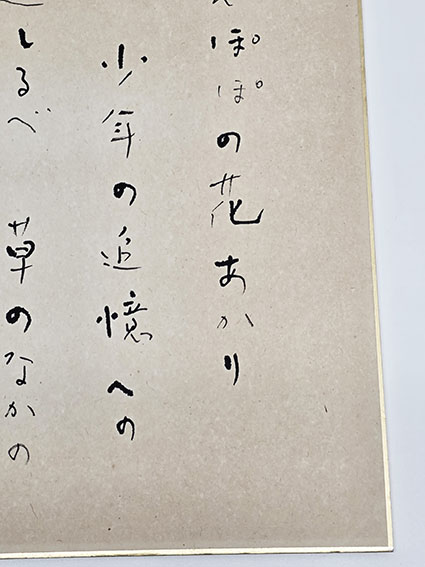 ぽぽの花あかり
少年の追憶への
しるべ 草のなかの